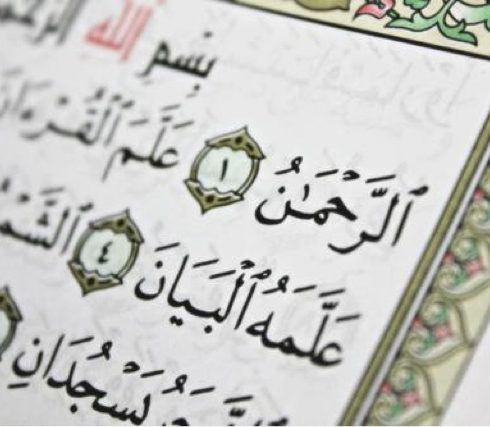 بِسْمِ اللَّهِ الرَّحْمَ
ٱلرَّحْمَٰنُ ١ عَلَّمَ ٱلْقُرْءَانَ
عَلَّمَهُ ٱلْبَيَانَ ٤ ٱلشَّمْ
يَسْجُدَانِ